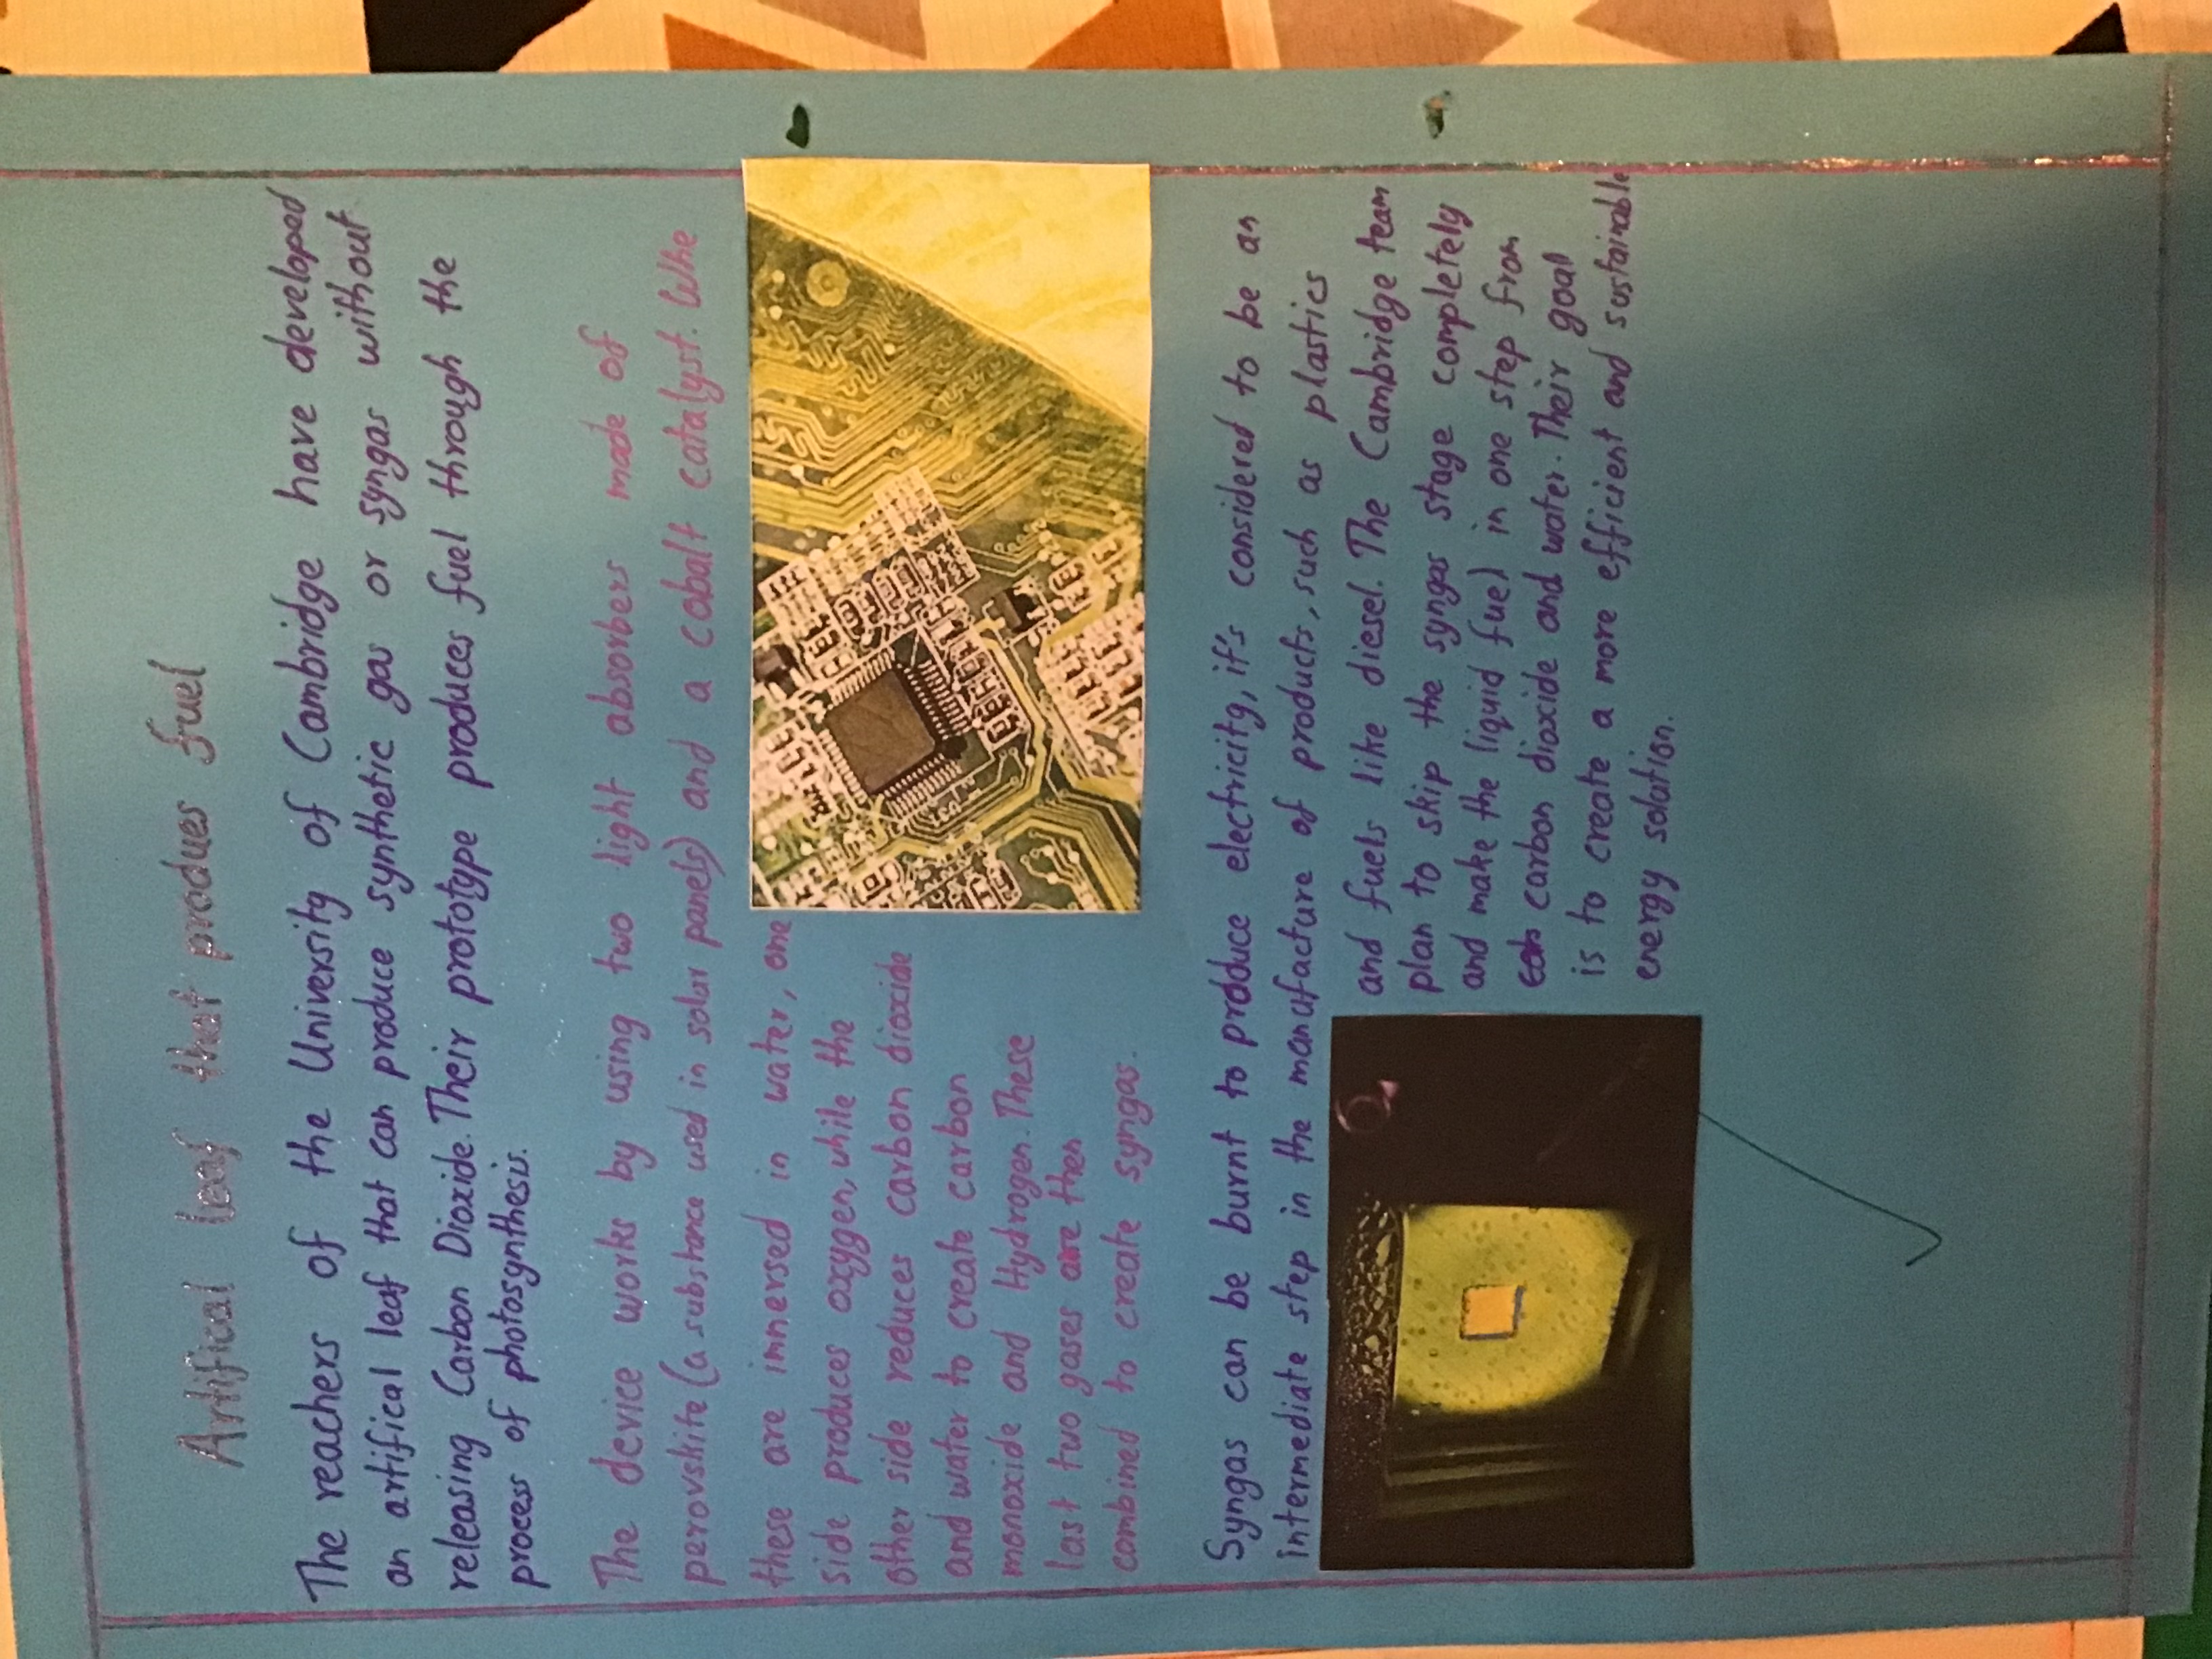 Artifical leaf that produes fuel
The reachers of the University of Cambridge have developed
an artifical leaf that can produce synthetic gas or syngas without
releasing Carbon Dioxide. Their prototype produces fuel through the
process of photosynthesis.
The device works by using two light absorbers made of
perovskite (a substance used in solar panels) and a cobalt catalyst. Whe
these are imnersed in water, one
side produces oxygen, while the
other side reduces carbon dioxide
and water to create carbon
monoxide and Hydrogen. These
last two gases are then
combined to create syngas.
Syngas can be burnt to produce electricity, it's considered to be an
intermediate step in the manufacture of products, such as plastics
and fuels like diesel. The Cambridge team
plan to skip the syngas stage completely
and make the liquid fuel in one step from
carbon dioxide and water. Their goal
is to create a more efficient and sustainable
energy solution.